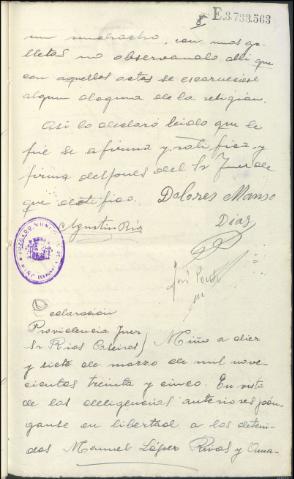 E.3.733.563
un muchacho, con unas ga-
lletas no observando allí que
con aquellos actos se escarneciese
algun dogma de la religión.
Asi lo declaró leido que le
fué se afirma y ratifica y
firma despues del Sr Juez de
que certifico. Dolores Manso
Agustin Rios
Diaz
José
Declaracion
Providencia Juez
Sr Rios Orteiros) Miño a diez
y siete de marzo de mil nove-
cientos treinta y cinco. En vista
de las diligencias anteriores pón-
ganse en libertad a los deteni-
dos Manuel López Rivas y